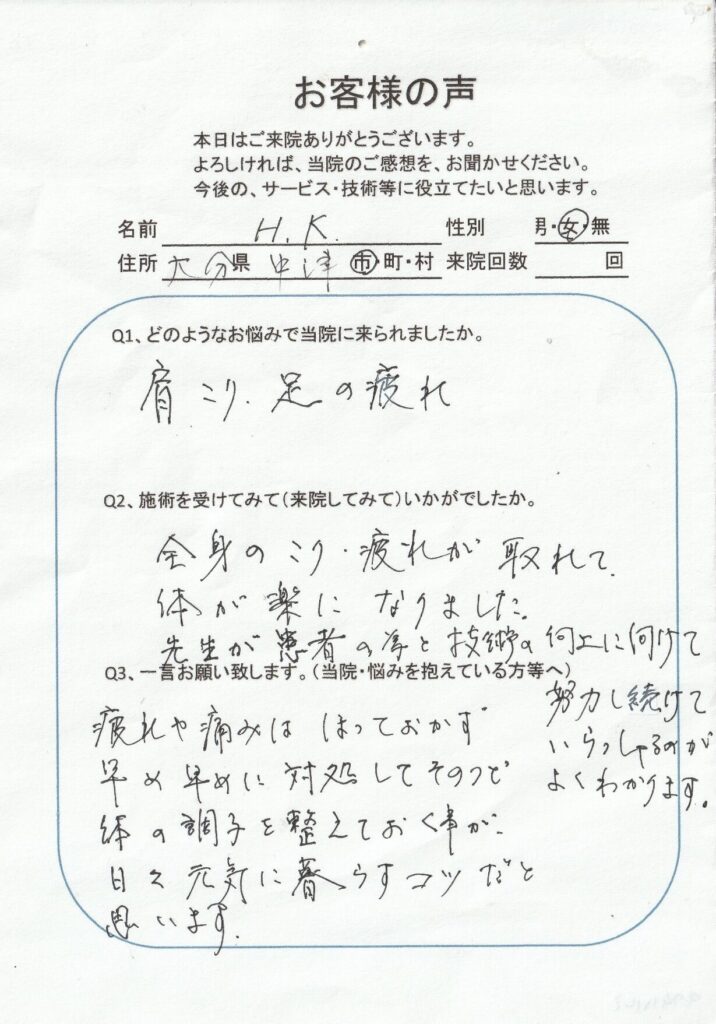 お客様の声
本日はご来院ありがとうございます。
よろしければ、当院のご感想を、お聞かせください。
今後の、サービス・技術等に役立てたいと思います。
名前 H.K. 性別 男・女・無
住所 大分県 中津 市・町・村 来院回数 回
Q1、どのようなお悩みで当院に来られましたか。
肩こり、足の疲れ
Q2、施術を受けてみて（来院してみて）いかがでしたか。
全身のこり・疲れが取れて、
体が楽になりました。
先生が患者の為と技術の向上に向けて
努力し続けて
いらっしゃるのが
よくわかります。
Q3、一言お願い致します。（当院・悩みを抱えている方等へ）
疲れや痛みは ほっておかず
早め早めに対処してそのつど
体の調子を整えておく事が、
日々元気に暮らすコツだと
思います。